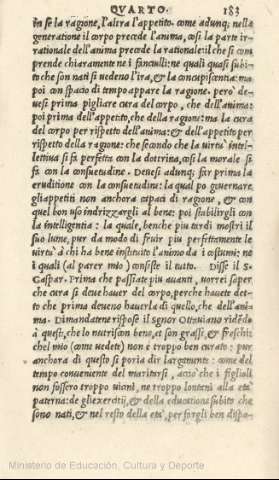 QVARTO. 183
in se la ragione, l'altra l'appetito. come adunq; nella
generatione il corpo precede l'anima, cosi la parte ir-
rationale dell'anima precede la rationale: il che si com
prende chiaramente ne i fanciulli: ne quali quasi subi-
to che son nati si uedeno l'ira, & la concupiscentia: ma
poi con spacio di tempo appare la ragione. però de-
uesi prima pigliare cura del corpo, che dell'anima:
poi prima dell'appetito, che della ragione: ma la cura
del corpo per rispetto dell'anima: & dell'appetito per
rispetto della ragione: che secondo che la uirtù intel-
lettiua si fa perfetta con la dottrina, cosi la morale si
fa con la consuetudine. Deuesi adunq; far prima la
eruditione con la consuetudine: la qual po guuernare
gli appetiti non anchora capaci di ragione, & con
quel bon uso indrizzargli al bene: poi stabilirgli con
la intelligentia: la quale, benche piu tardi mostri il
suo lume, pur dà modo di fruir piu perfettamente le
uirtù à chi ha bene instituito l'animo da i costumi: ne
i quali (al parer mio) consiste il tutto. Disse il S.
Gaspar. Prima che passiate piu auanti, uorrei saper
che cura si deue hauer del corpo, perche hauete det-
to che prima deueno hauerla di quello, che dell'ani-
ma. Dimandatene rispose il Signor Ottauiano ridēdo
à questi, che lo nutriscon bene, et son grassi, & freschi:
che'l mio (come uedete) non è troppo ben curato: pur
anchora di questo si poria dir largamente: come del
tempo conueniente del maritarsi, acciò che i figlioli
non fossero troppo uicini, ne troppo lontani alla età
paterna: de gli exercitii, & della educatione subito che
sono nati, & nel resto della età, per fargli ben dispo-
Ministerio de Educación, Cultura y Deporte